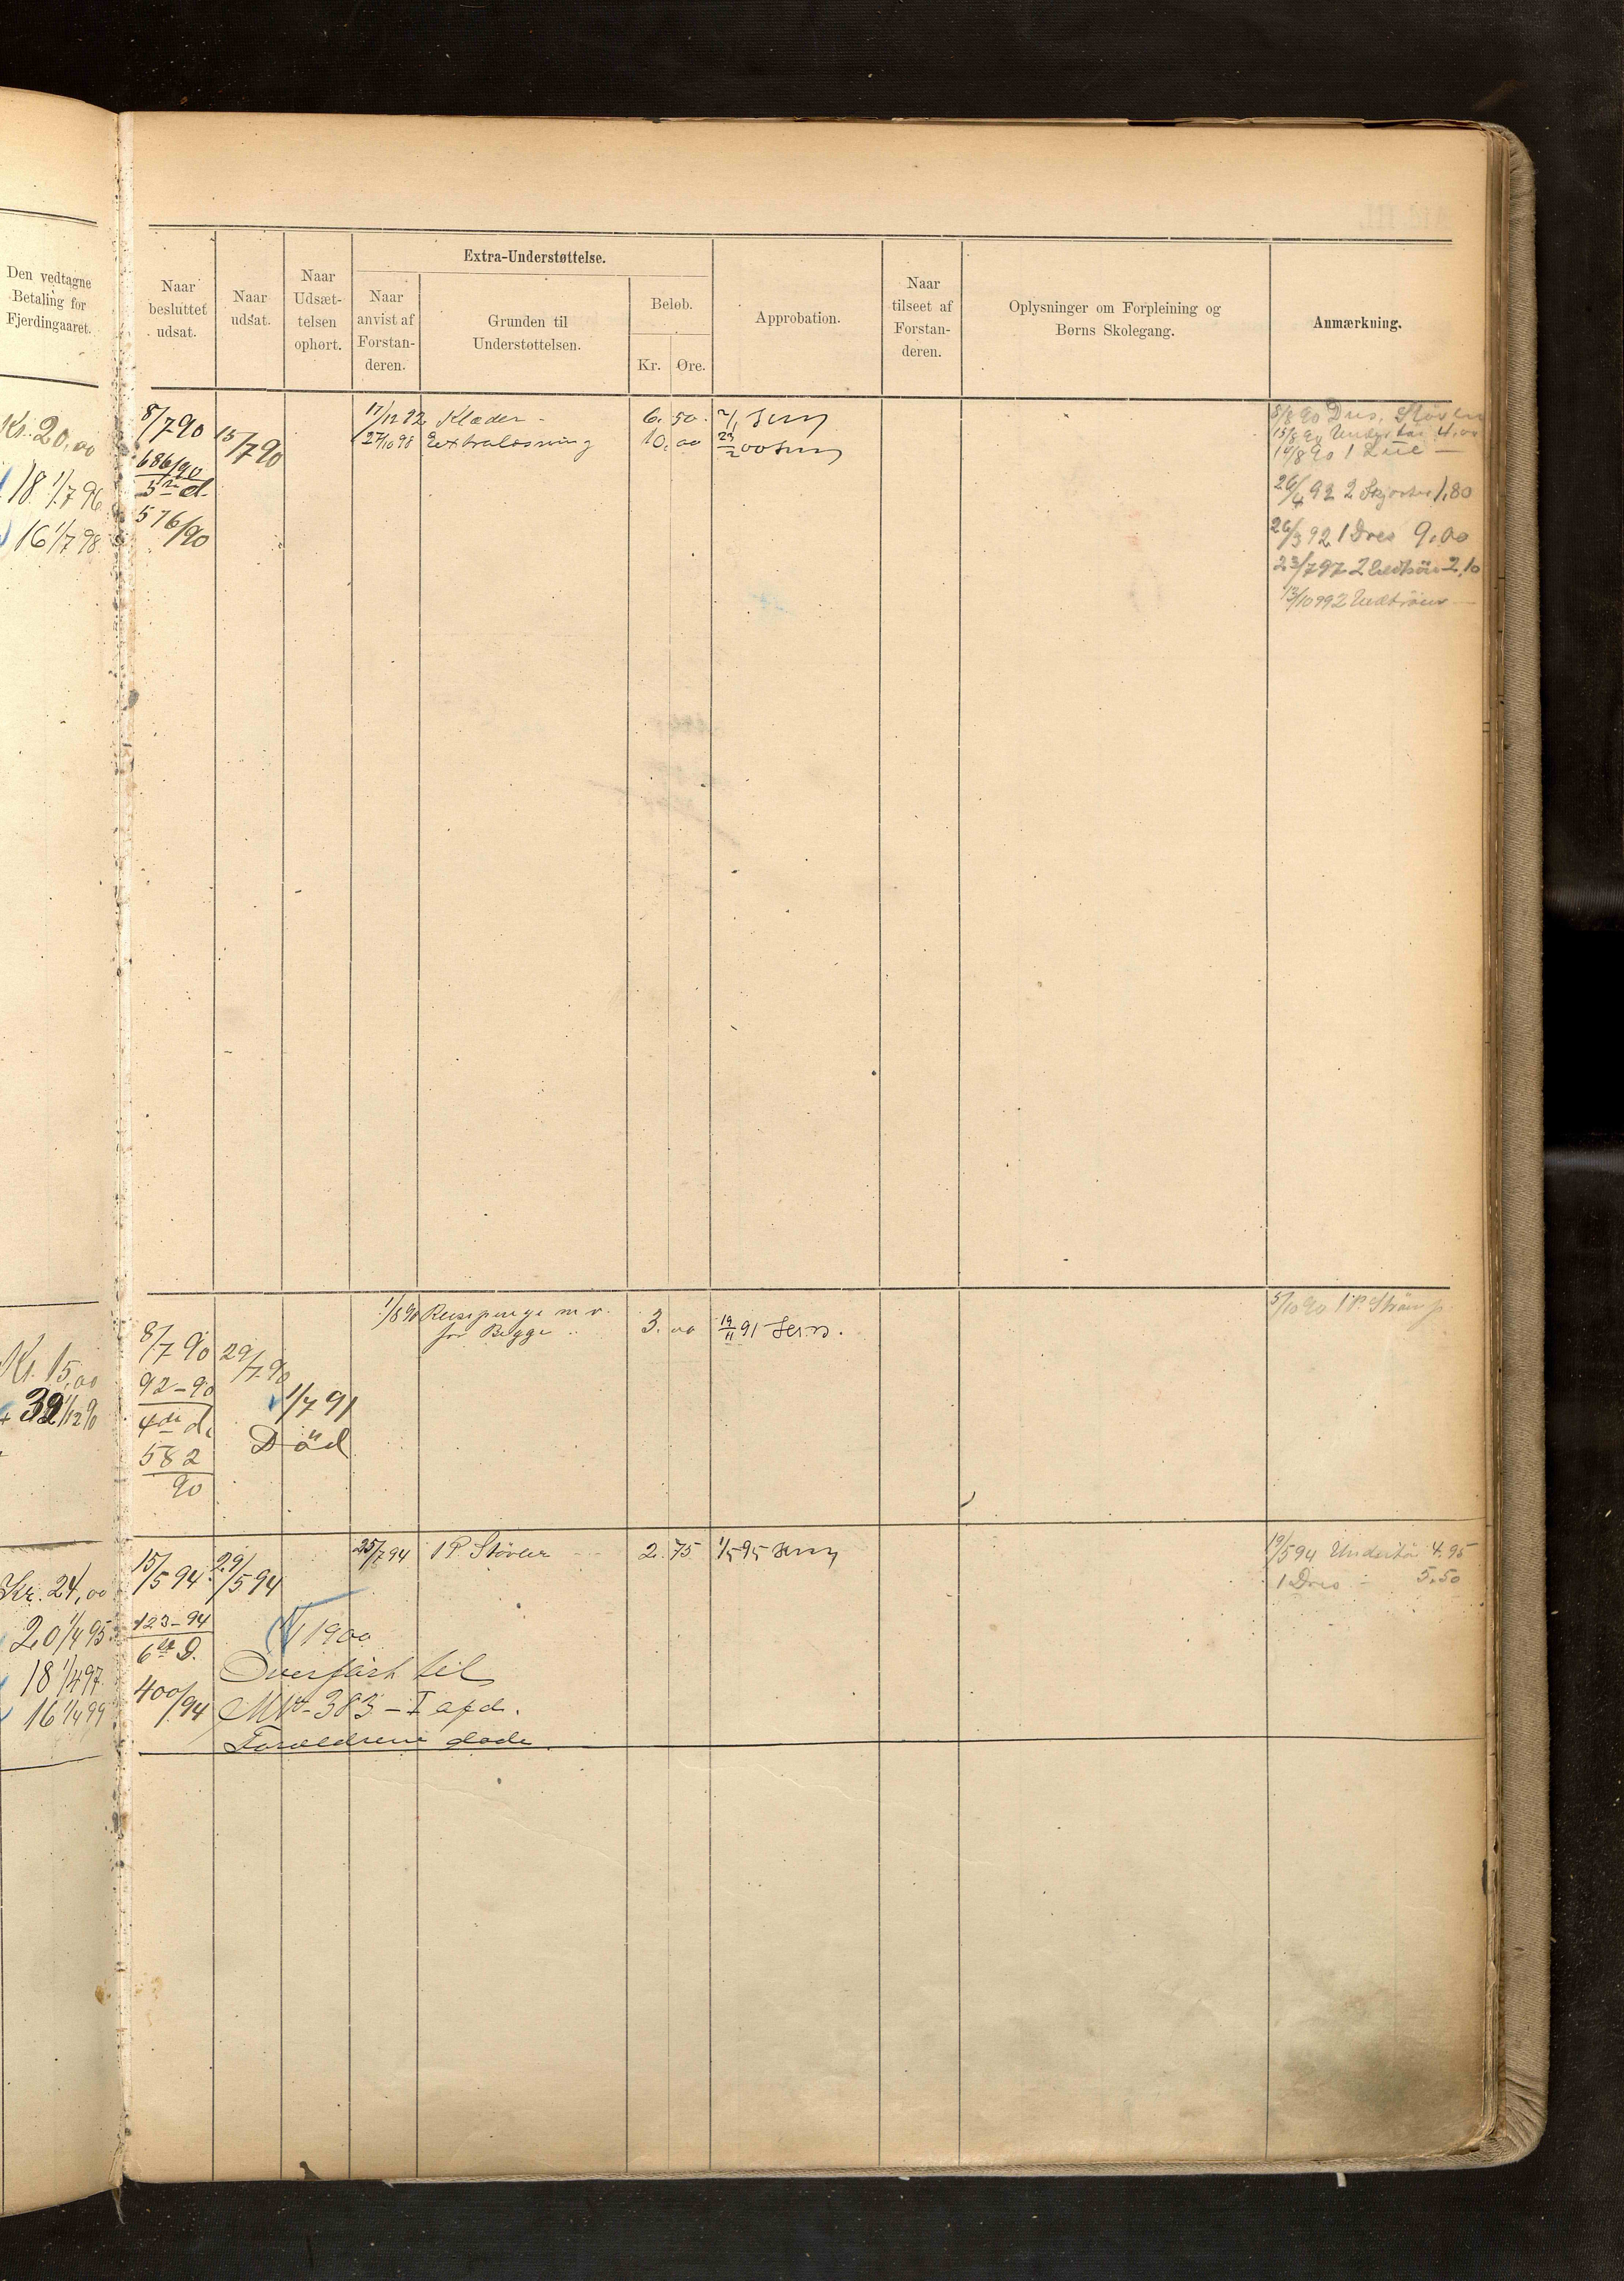 Den vedtagne
Betaling for
Fjerdingaaret.
Naar
besluttet
udsat.
Naar
udsat.
Naar
Udsæt-
telsen
ophørt.
Extra-Understøttelse.
Naar
anvist af
Forstan-
deren.
Grunden til
Understøttelsen.
Beløb.
Kr. Øre.
Approbation.
Naar
tilseet af
Forstan-
deren.
Oplysninger om Forpleining og
Børns Skolegang.
Anmærkning.
Kr. 20,00
18 1/7 96
16 1/7 98
8/7 90
686/90
5te d.
576/90
15/7 90
17/12 92 Klæder 6. 50.
27/10 98 10. 00
5/8 90 Dres. Støvler
15/8 90 4,00
14/8 90 1 Lue —
26/4 92 2 Skjorter 1,80
26/3 92 1 Dres 9,00
23/7 97 2 2,10
13/10 99 2
Kr. 15,00
8/7 90
92-90
4de d.
582
90
29/7 90
1/7 91
Död
1/8 90 Reisepenge m v.
for Begge 3. 00 19/11 91
5/10 90 1 P.
Kr. 24,00
20 1/4 95
18 1/4 97
16 1/4 99
15/5 94
123-94
6te D.
400/94
29/5 94
25/7 94 1 P. Støvler 2. 75 1/5 95
1900
Overført til
383 - I afd.
Forældrene døde
19/5 94 Undertöi 4.95
1 Dres - 5,50